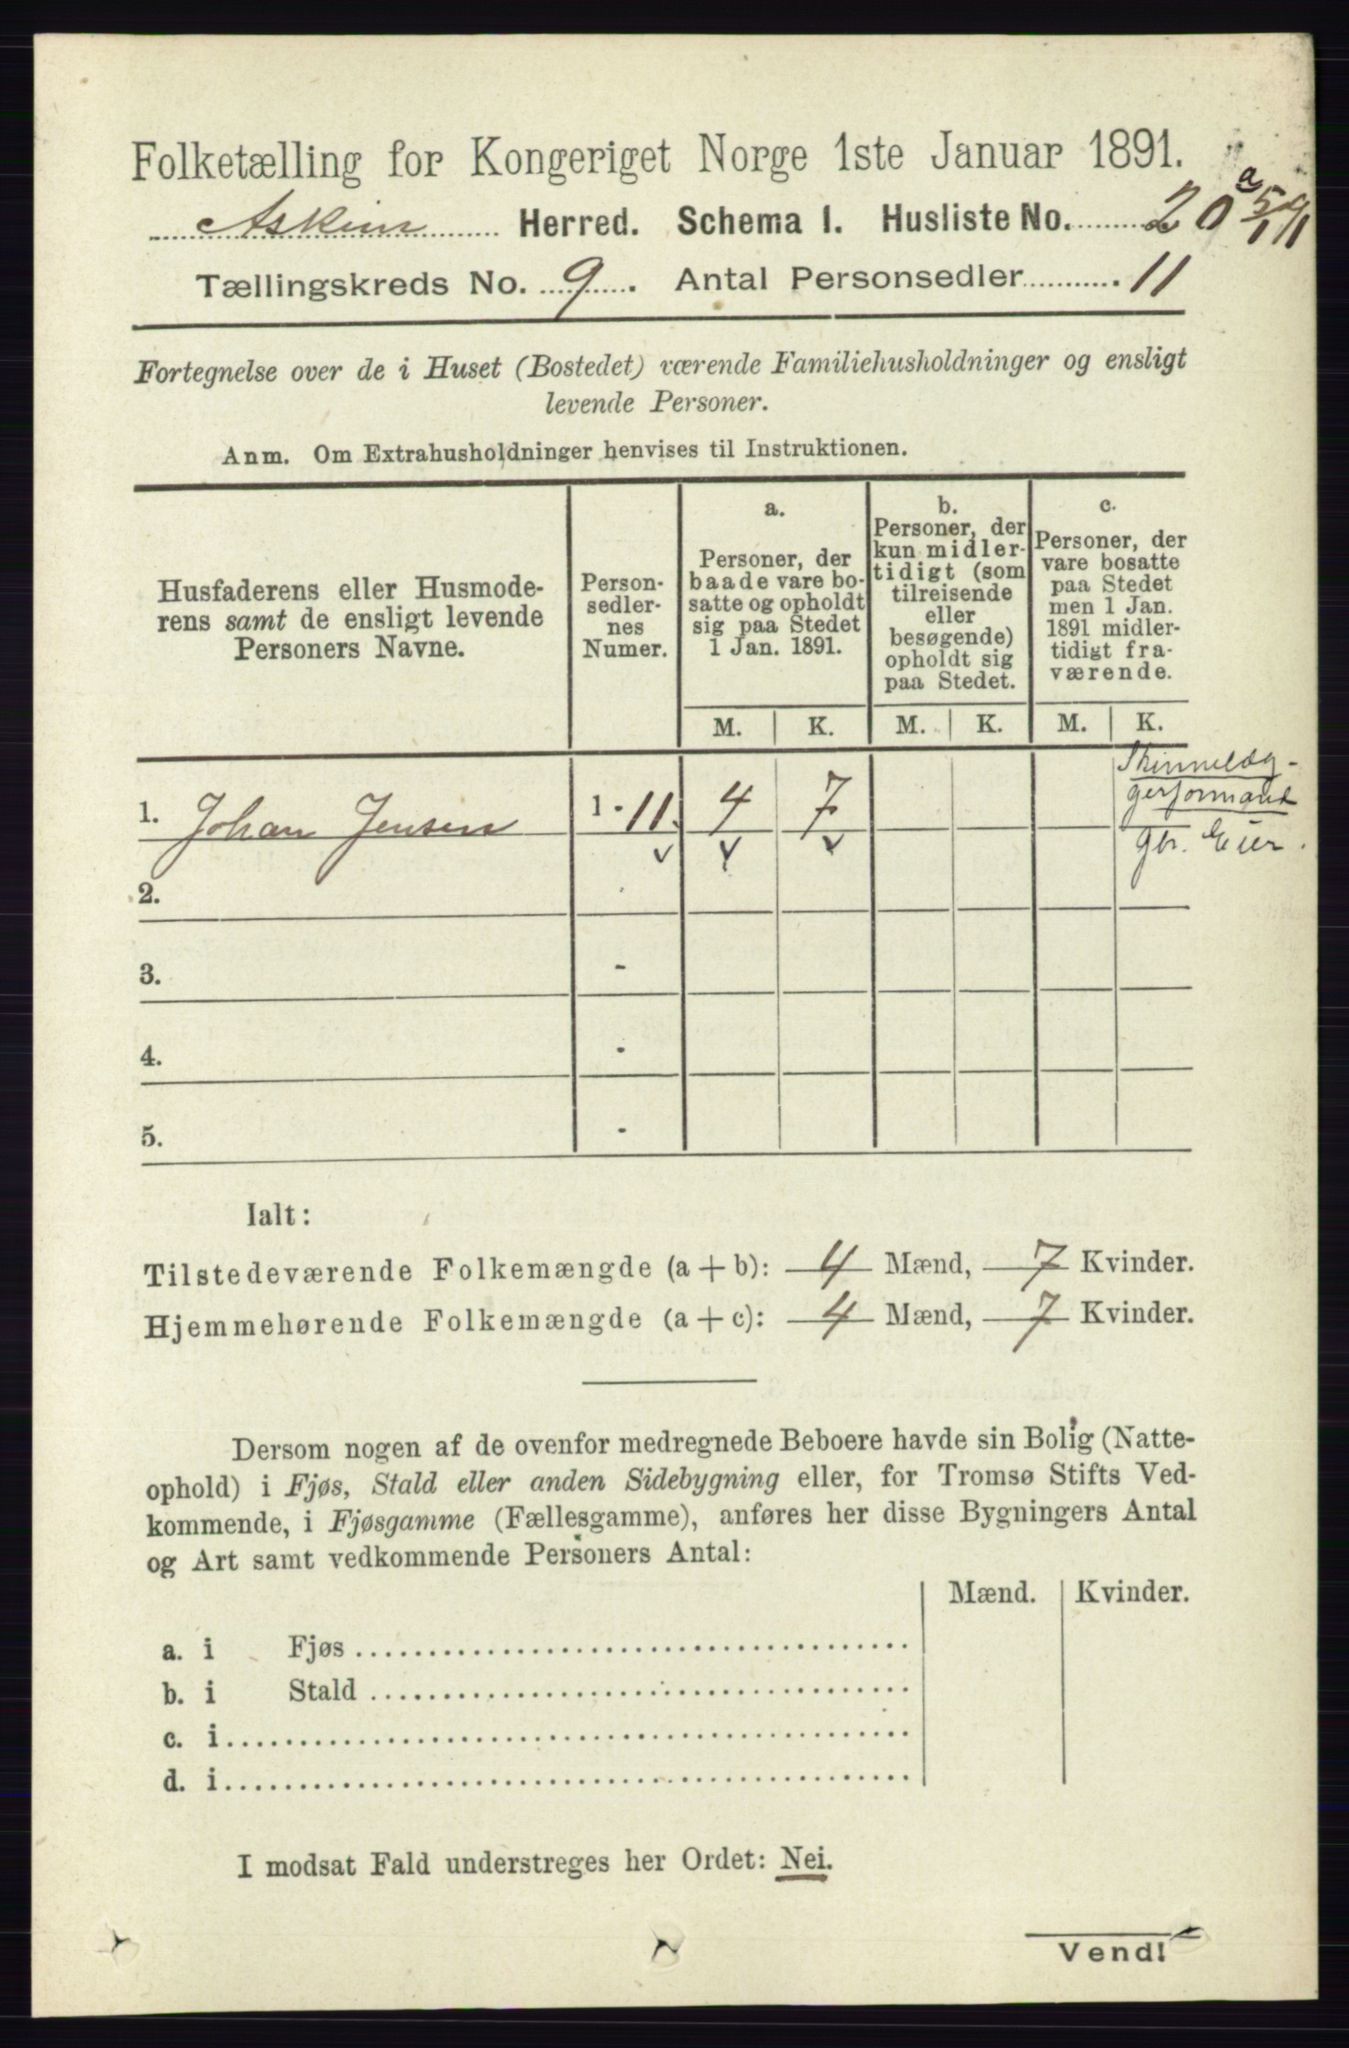 Folketælling for Kongeriget Norge 1ste Januar 1891.
Askim Herred. Schema 1. Husliste No. 20 a
Tællingskreds No. 9. Antal Personsedler 11
Fortegnelse over de i Huset (Bostedet) værende Familiehusholdninger og ensligt
levende Personer.
Anm. Om Extrahusholdninger henvises til Instruktionen.
Husfaderens eller Husmode-
rens samt de ensligt levende
Personers Navne.
Person-
sedler-
nes
Numer.
a.
Personer, der
baade vare bo-
satte og opholdt
sig paa Stedet
1 Jan. 1891.
b.
Personer, der
kun midler-
tidigt (som
tilreisende
eller
besøgende)
opholdt sig
paa Stedet.
c.
Personer, der
vare bosatte
paa Stedet
men 1 Jan.
1891 midler-
tidigt fra-
værende.
M. K. M. K. M. K.
Skinnelæg-
gerformand
gbr. Eier.
1. Johan Jensen 1 - 11. 4 7
2.
3. -
4. -
5. -
Ialt:
Tilstedeværende Folkemængde (a + b): 4 Mænd, 7 Kvinder.
Hjemmehørende Folkemængde (a + c): 4 Mænd, 7 Kvinder.
Dersom nogen af de ovenfor medregnede Beboere havde sin Bolig (Natte-
ophold) i Fjøs, Stald eller anden Sidebygning eller, for Tromsø Stifts Ved-
kommende, i Fjøsgamme (Fællesgamme), anføres her disse Bygningers Antal
og Art samt vedkommende Personers Antal:
Mænd. Kvinder.
a. i Fjøs
b. i Stald
c. i
d. i
I modsat Fald understreges her Ordet: Nei.
Vend!